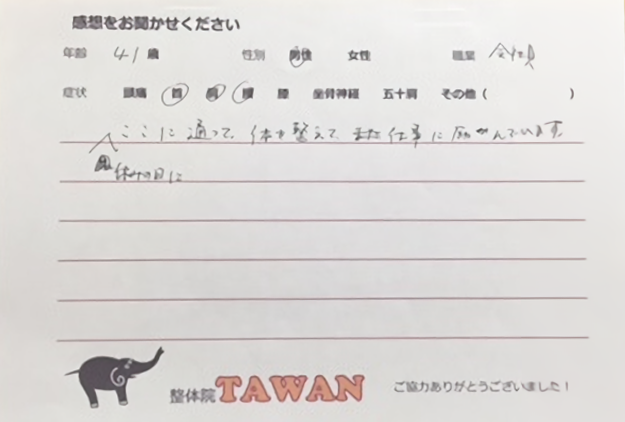 感想をお聞かせください
年齢 41歳 性別 男性 女性 職業 会社員
症状 頭痛 首 肩 腰 膝 坐骨神経 五十肩 その他( )
ここに通って、体を整えて、また仕事に励んでいます。
休みの日に
整体院 TAWAN ご協力ありがとうございました!